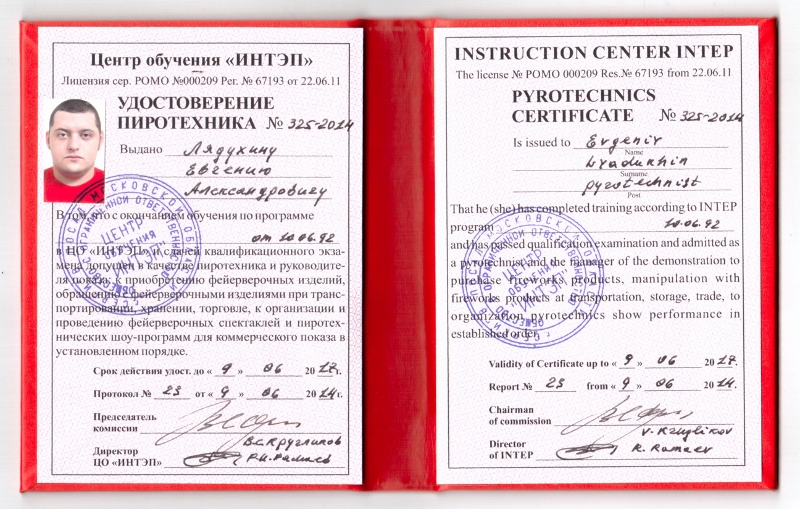 Центр обучения «ИНТЭП»
Лицензия сер. РОМО №000209 Рег. № 67193 от 22.06.11
УДОСТОВЕРЕНИЕ
ПИРОТЕХНИКА № 325-2014
Выдано Лядухину
Евгению
Александровичу
В том, что с окончанием обучения по программе
от 10.06.92
в ЦО «ИНТЭП» и сдачей квалификационного экза-
мена допущен в качестве пиротехника и руководите-
ля показа, к приобретению фейерверочных изделий,
обращению с фейерверочными изделиями при транс-
портировании, хранении, торговле, к организации и
проведению фейерверочных спектаклей и пиротех-
нических шоу-программ для коммерческого показа в
установленном порядке.
Срок действия удост. до « 9 » 06 2017г.
Протокол № 23 от « 9 » 06 2014г.
Председатель
комиссии
В.С.Кругликов
Директор
ЦО «ИНТЭП»
ЦЕНТР
ОБУЧЕНИЯ
"ИНТЭП"
INSTRUCTION CENTER INTEP
The license № РОМО 000209 Res.№ 67193 from 22.06.11
PYROTECHNICS
CERTIFICATE № 325-2014
Is issued to Evgeniy
Name
Lyadukhin
Surname
pyrotechnist
Post
That he (she) has completed training according to INTEP
program 10.06.92
and has passed qualification examination and admitted as
a pyrotechnist and the manager of the demonstration to
purchase fireworks products, manipulation with
fireworks products at transportation, storage, trade, to
organization pyrotechnics show performance in
established order.
Validity of Certificate up to « 9 » 06 2017.
Report № 23 from « 9 » 06 2014.
Chairman
of commission
V. Kruglikov
Director
of INTEP
R. Ramaev
ЦЕНТР
ОБУЧЕНИЯ
"ИНТЭП"